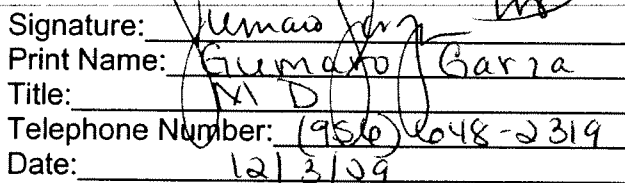 Signature: Gumaro Garza MD
Print Name: Gumaro Garza
Title: MD
Telephone Number: (956) 648-2319
Date: 12/3/09